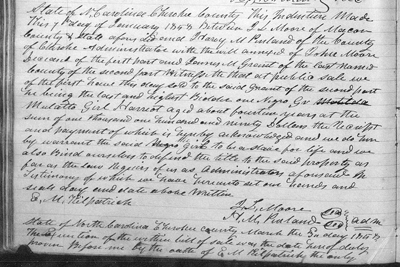 State of N Carolina Cherokee County This Indenture Made
This 7th day of January 1858 Between J L Moore of Macon
County & State aforesaid and Harvey M Penland of the County
of Cherokee Administrators with the will annexed of John Moore
Deceased of the first part and James M Grant of the last named
County of the second part Witnesseth that at public sale we
of the first part this day sold to the said Grant of the second part
he being the last and highest bidder one Negro Girl
Mulatto Girl Harriet aged about fourteen years at the
sum of one thousand one hundred and ninety Dollars the receipt
and payment of which is hereby acknowledged and we do him
by warrant the said Negro Girl to be a slave for life and we
also bind ourselves to defend the title to the said property as
far as the law requires of us as administrators aforesaid In
Testimony of which we have hereunto set our hands and
seals day and date above written
E. M. Kilpatrick J L Moore
H. M. Penland adm
State of North Carolina Cherokee County March the day 1858
The execution of the within bill of sale was the date hereof duly
proven before me by the oath of E M Kilpatrick the only